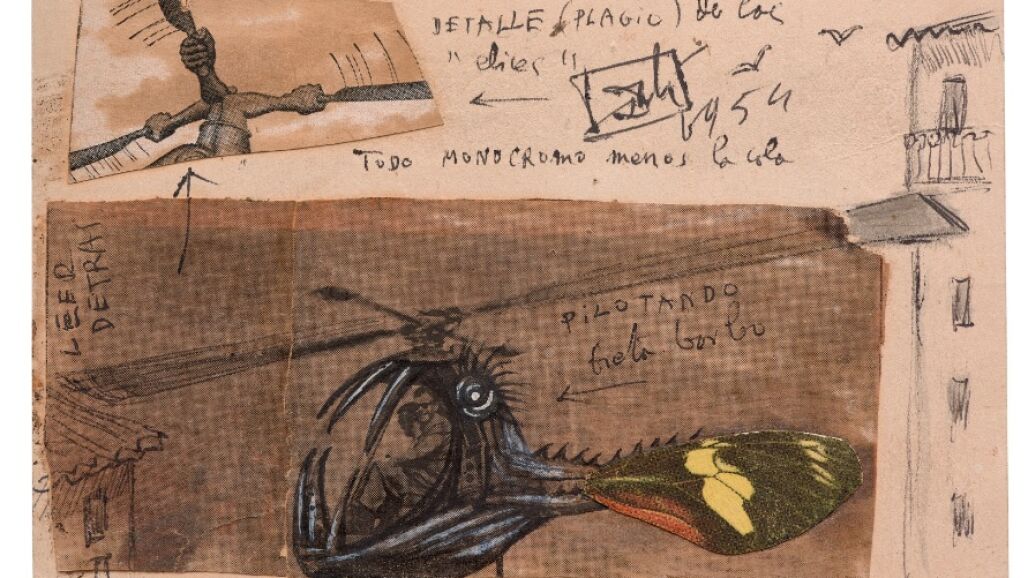 DETALLE (PLAGIO) de las
"elices"
1954
TODO MONOCROMO menos la cola
LEER
DETRAS
PILOTANDO
Greta Garbo